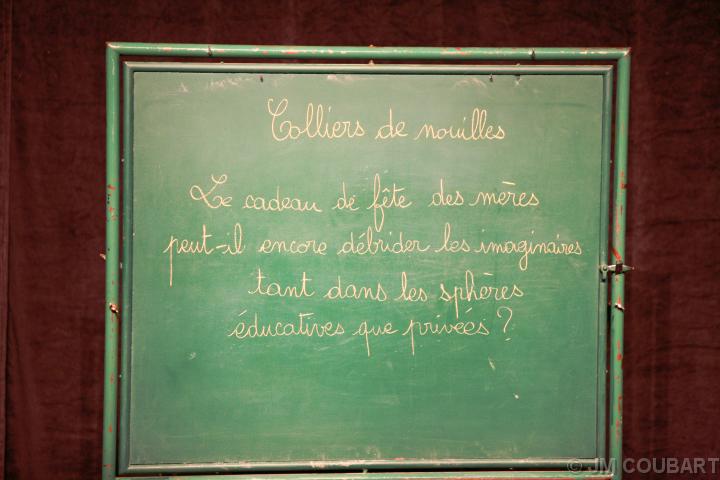 Colliers de nouilles
Le cadeau de fête des mères
peut-il encore débrider les imaginaires
tant dans les sphères
éducatives que privées ?
© JM COUBART